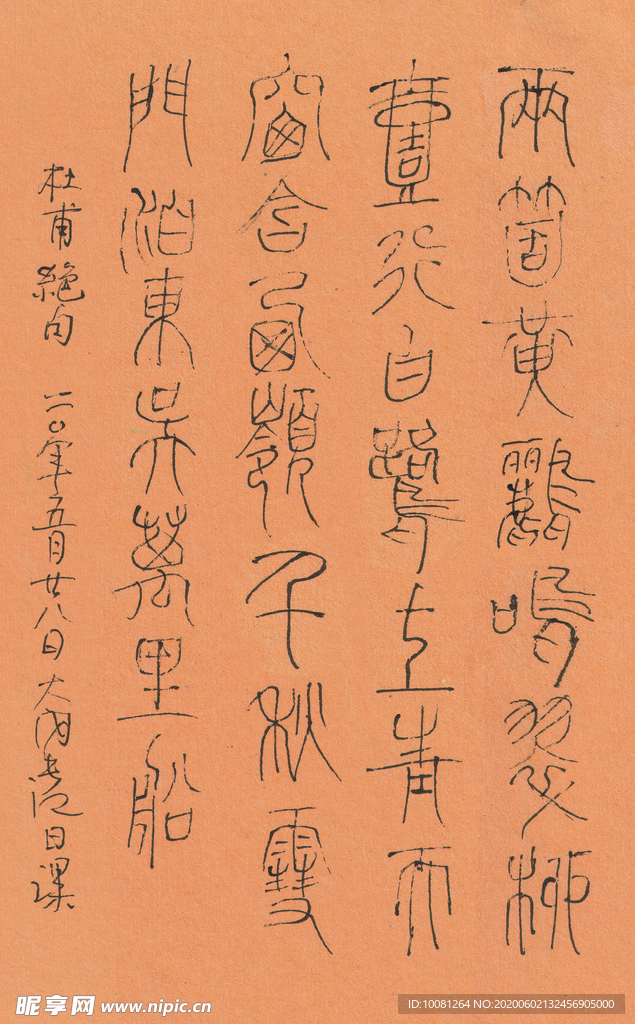 兩箇黃鸝鳴翠柳
壹行白鷺上青天
窗含西嶺千秋雪
門泊東吳萬里船
杜甫絕句 二〇年五月廿八日 大 日課
昵享网 www.nipic.cn
ID:10081264 NO:20200602132456905000